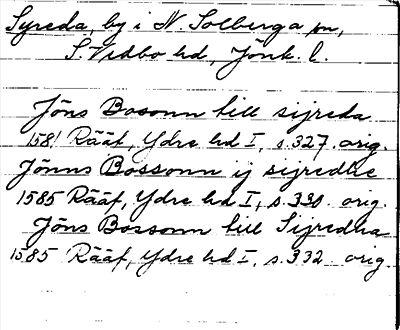 Syreda, by i N. Solberga sn,
S. Vedbo hd, Jönk. l.
Jöns Bosonn till sijreda
1581 Rääf, Ydre hd I, s. 327. orig.
Jönns Bossonn ij sigredhe
1585 Rääf, Ydre hd I, s. 330. orig.
Jöns Bossonn till Sijredha
1585 Rääf, Ydre hd I, s. 332. orig.